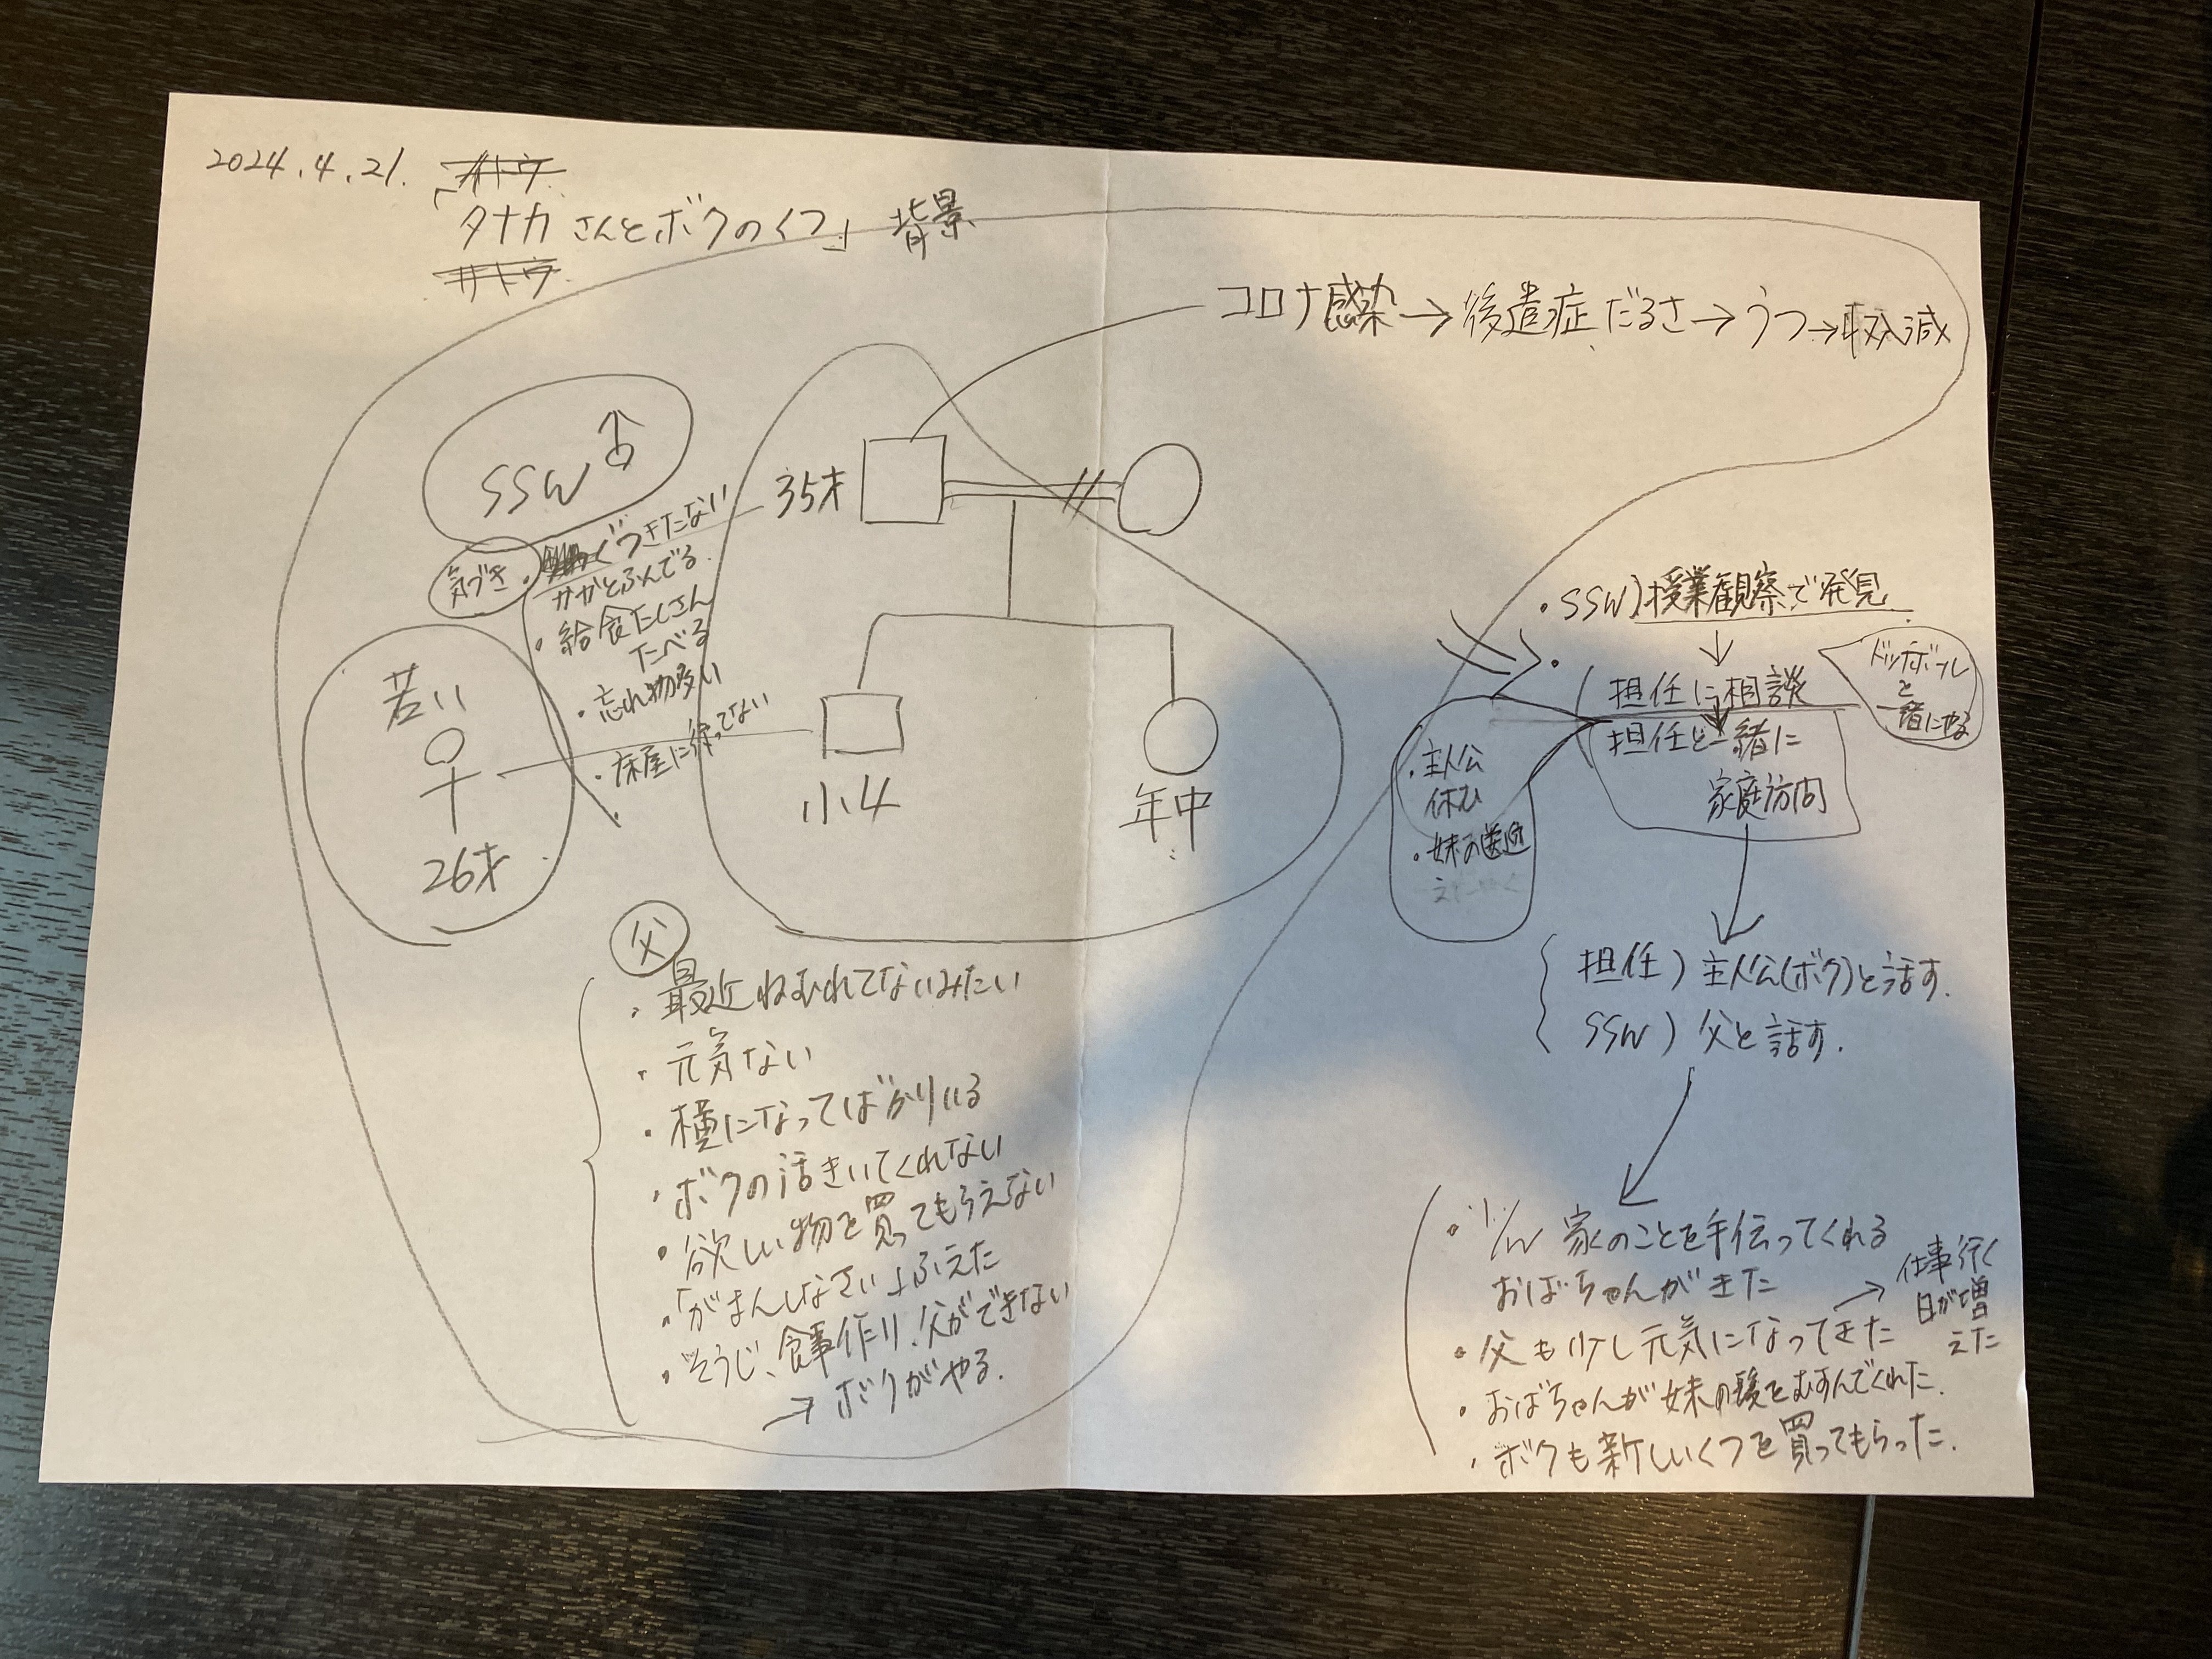 2024.4.21.
「タナカさんとボクのくつ」背景
サトウ
コロナ感染→後遺症だるさ→うつ→収入減
SSW
35才
気づき
・ぐつきたない
かかとふんでる.
・給食たくさん
たべる
・忘れ物多い
・床屋に行ってない
若い
26才
小4
年中
父
・最近ねむれてないみたい
・元気ない
・横になってばかりいる
・ボクの話きいてくれない
・欲しい物を買ってもらえない
・「がまんしなさい」ふえた
・そうじ、食事作り、父ができない
→ボクがやる.
・SSW)授業観察で発見
↓
担任に相談
ドッジボール
と
一緒にやる
担任と一緒に
家庭訪問
・主人公
休む
・妹の送迎
担任)主人公(ボク)と話す.
SSW)父と話す.
・1/W 家のことを手伝ってくれる
おばちゃんがきた
・父も少し元気になってきた
→仕事行く
日が増
えた
・おばちゃんが妹の髪をむすんでくれた.
・ボクも新しいくつを買ってもらった.